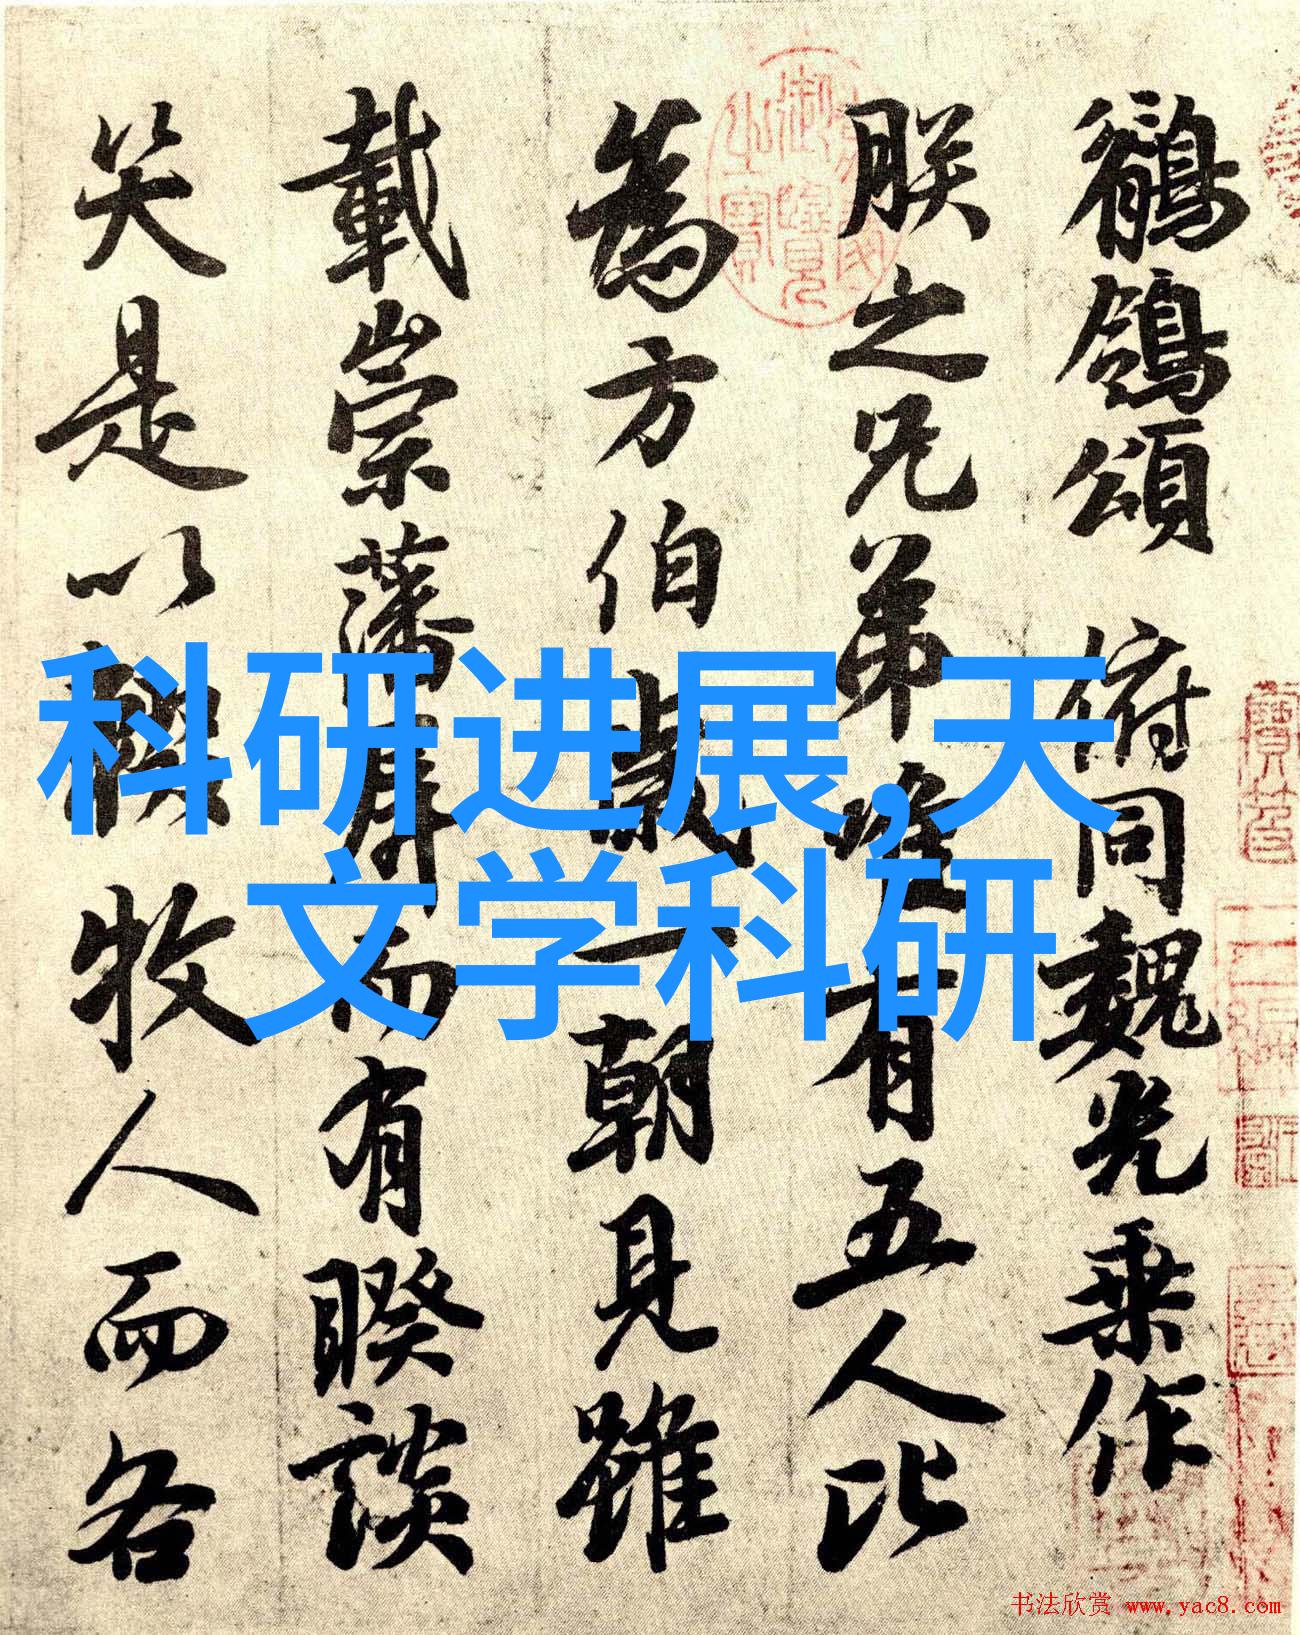 鶺鴒頌 俯同魏光乗作
朕之兄弟唯有五人比
為方伯歲一朝見雖
載崇藩屏而有暌談
笑是以輟牧人而各
科研进展,天
文学科研
书法欣赏 www.yac8.com